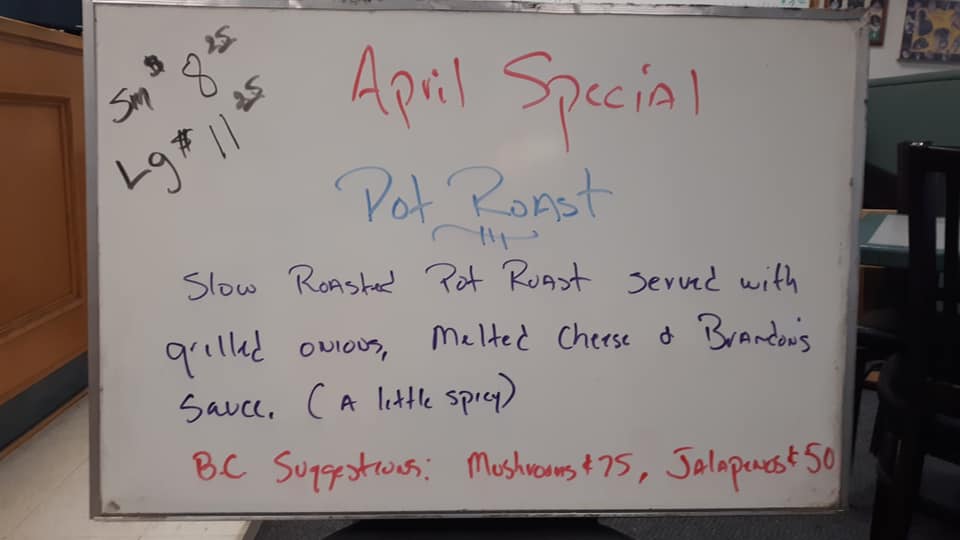 Sm $ 8 25
Lg $ 11 25
April Special
Pot Roast
Slow Roasted Pot Roast served with
grilled onions, Melted Cheese & Brandon's
Sauce. (A little spicy)
B.C Suggestions: Mushrooms $ 75, Jalapenos $ 50